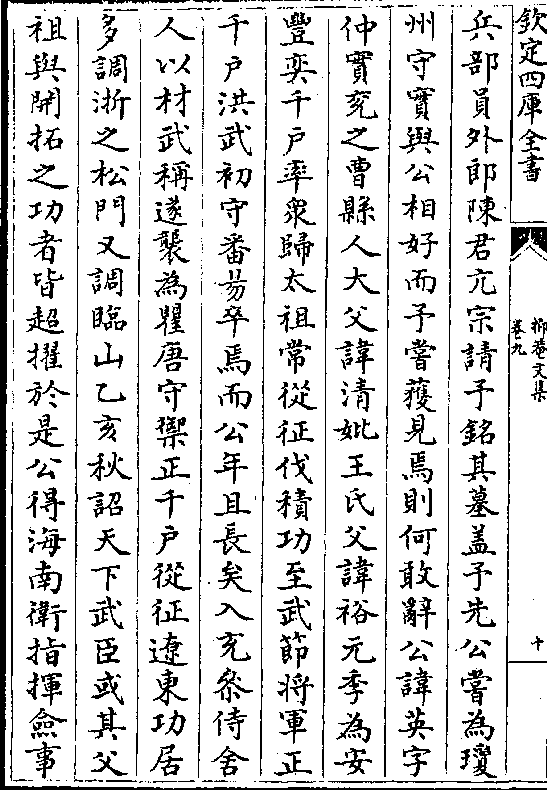 欽定四庫全書
抑菴文集
卷九
十
兵部員外郎陳君亢宗請予銘其墓盖予先公嘗為瓊
州守實與公相好而予嘗獲見焉則何敢辭公諱英字
仲實兖之曹縣人大父諱清妣王氏父諱裕元季為安
豐奕千户率衆歸太祖常從征伐積功至武節將軍正
千户洪武初守番昜卒焉而公年且長矣入充叅侍舍
人以材武稱遂襲為瞿唐守禦正千户從征遼東功居
多調浙之松門又調臨山乙亥秋詔天下武臣或其父
祖與開拓之功者皆超擢於是公得海南衛指揮僉事